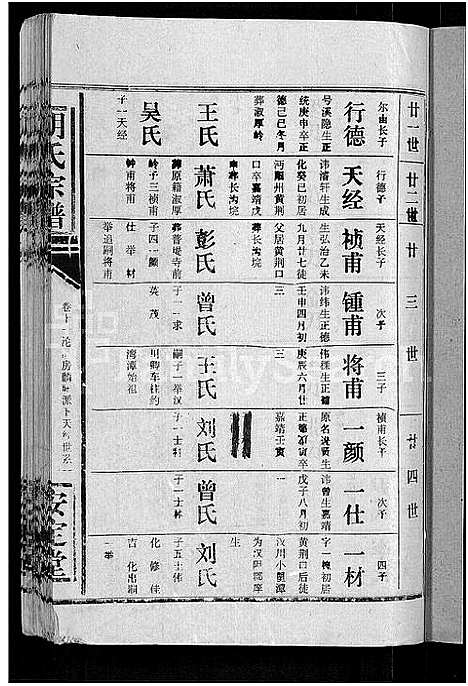 廿一世
廿二世
廿三世
廿四世
尔由长子
行德
号溪隐生正
统庚申卒正
德己巳冬月
葬淑厚岭
王氏
吴氏
子一天经
行德子
天经
讳濬轩生成
化癸巳初居
沔阳州黄荆
口卒嘉靖戊
葬长沟垸
萧氏
葬原籍淑厚
岭子三桢甫
钟甫将甫
天经长子
桢甫
生弘治乙未
九月廿七徒
父居黄荆口
葬长沟垸
彭氏
葬普堤寺前
子四一颜
仕举材
举道嗣将甫
次子
锺甫
讳纬生正德
壬申四月初
三
曾氏
子一一求
英茂
三子
将甫
庚辰六月廿
三
王氏
嗣子一举汉
川卿车符约
湾潭始祖
桢甫长子
一颜
嘉靖壬寅
刘氏
子一士轩
次子
一仕
讳曾生嘉靖
戊子八月初
曾氏
子一士林
四子
一材
字一槐初居
黄荆口后徒
汉川小里潭
为汉阳郡庠
生
刘氏
子五士伟
化修佳
吉化出嗣
一举
胡氏宗谱
安定堂